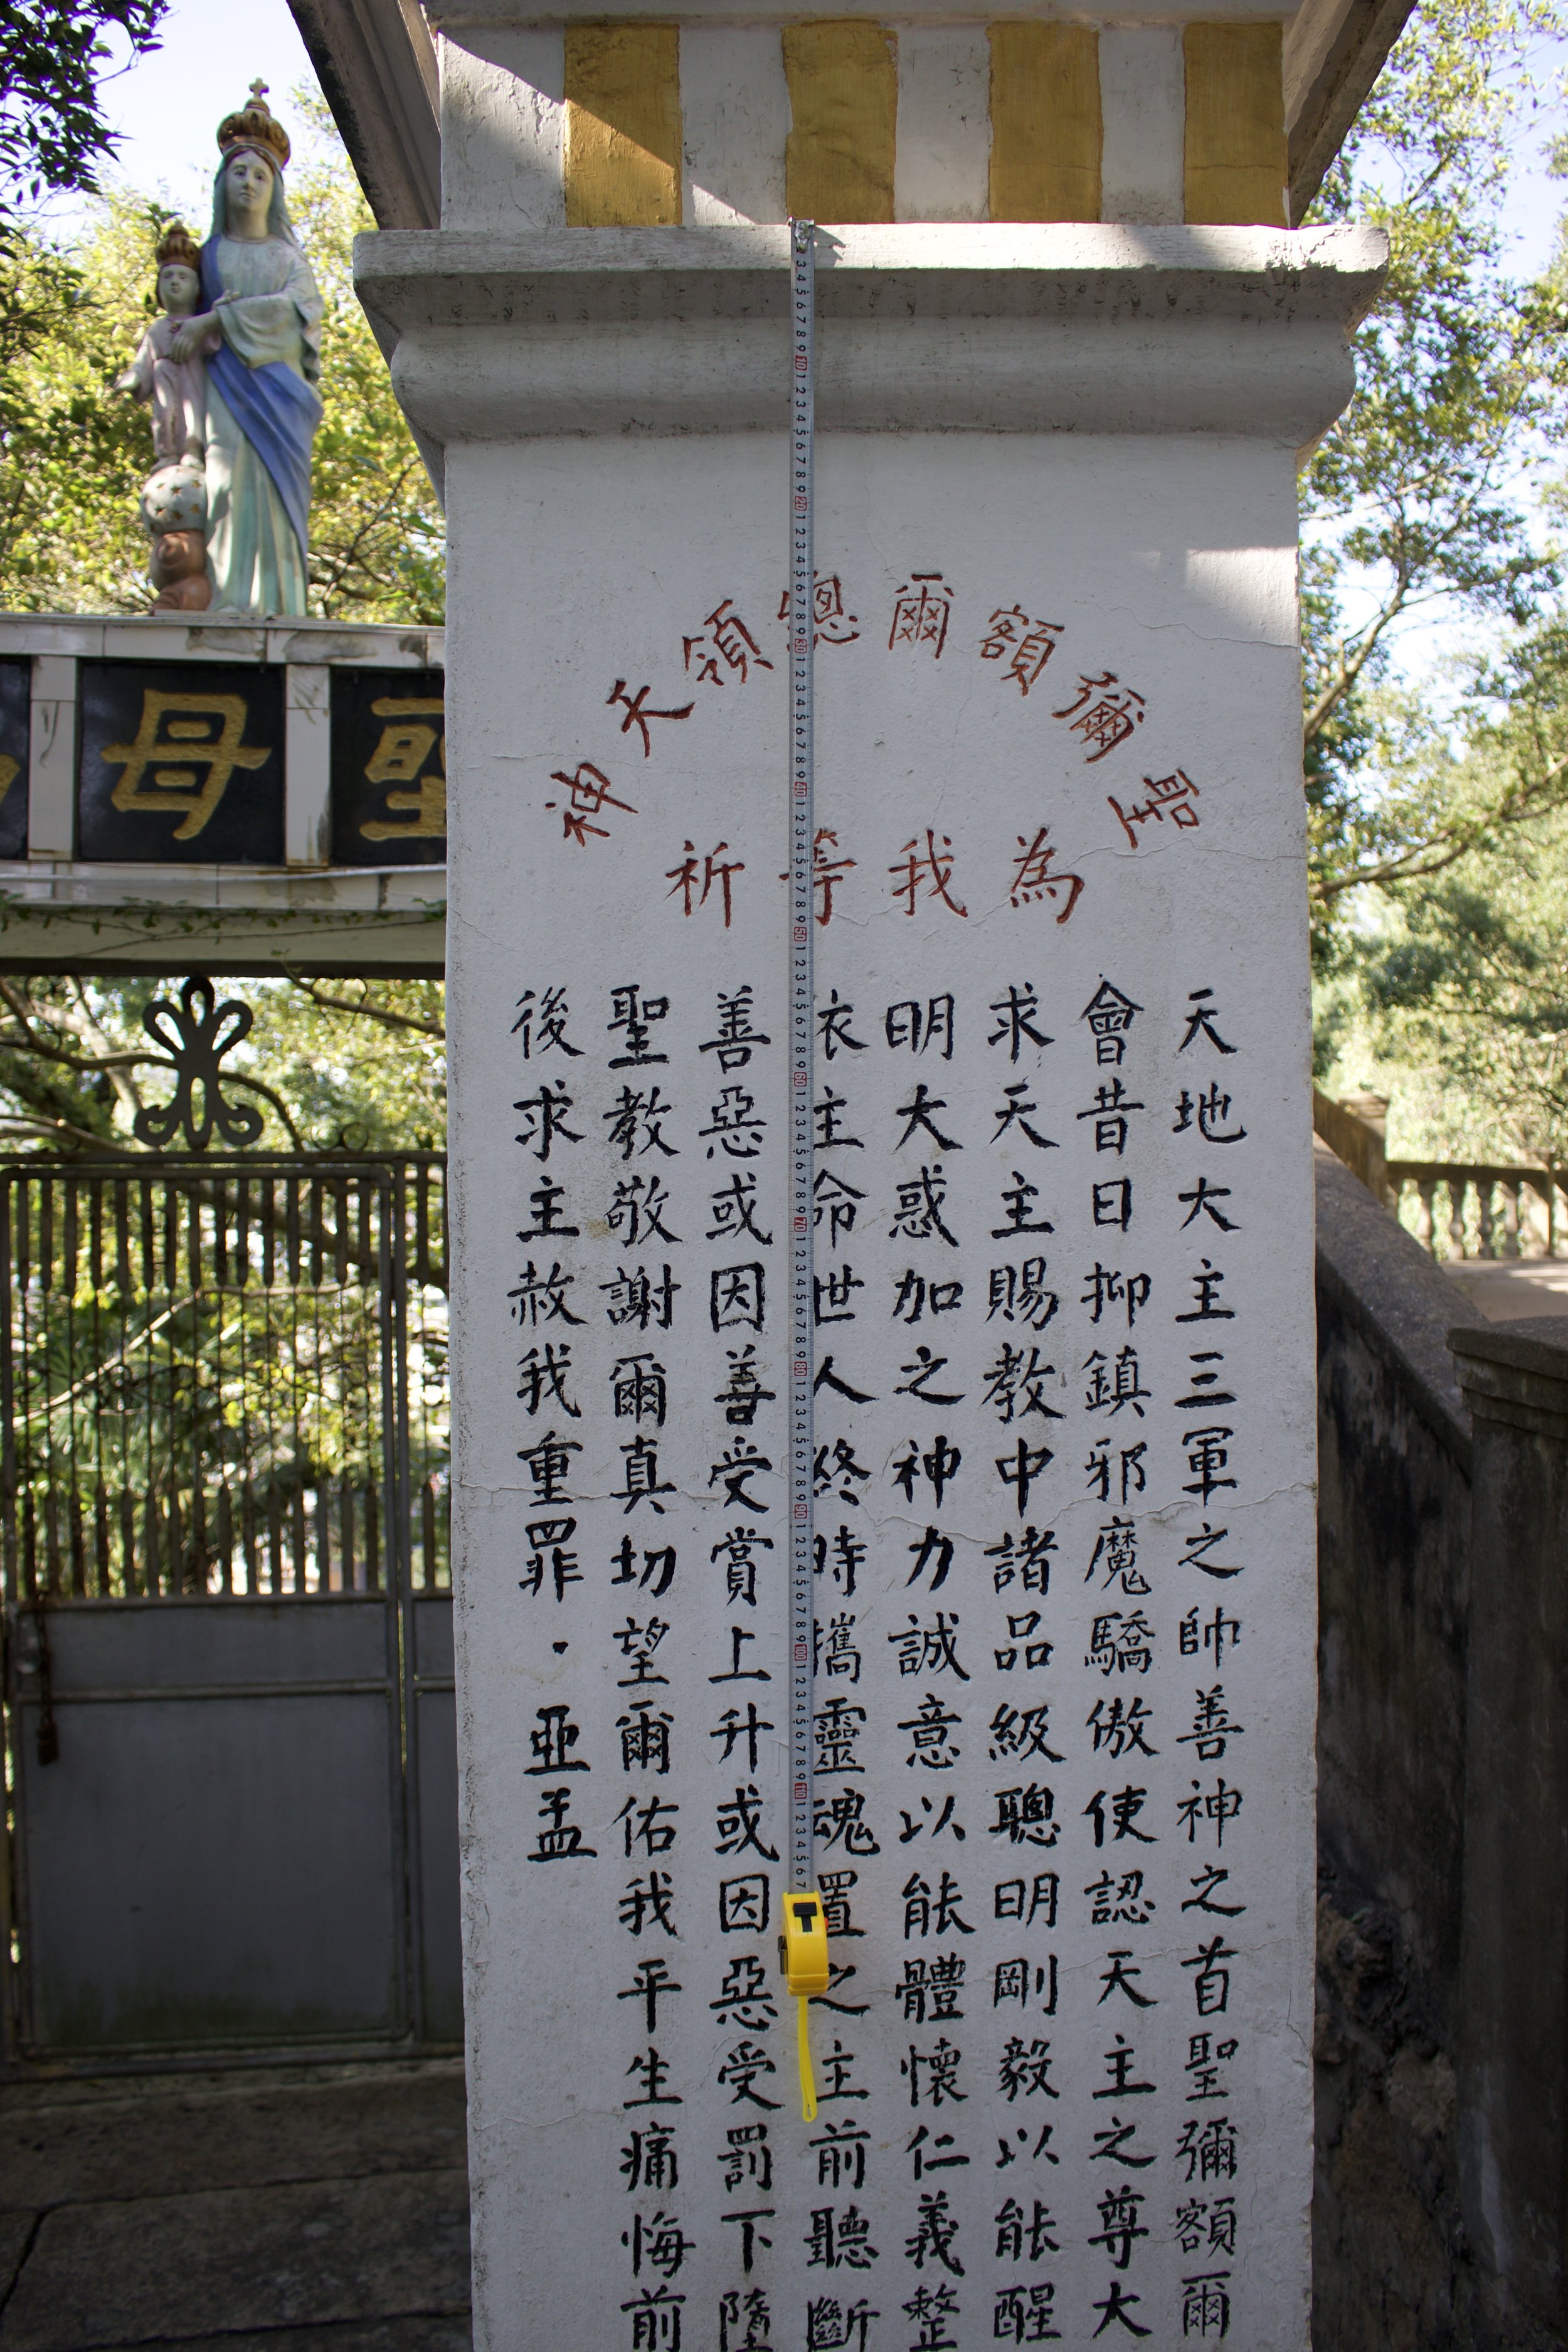 聖彌額爾總領天神
為我等祈
天地大主三軍之帥善神之首聖彌額爾
會昔日抑鎮邪魔驕傲使認天主之尊大
求天主賜教中諸品級聰明剛毅以能醒
明大惑加之神力誠意以能體懷仁義整
依主命世人終時攜靈魂置之主前聽斷
善惡或因善受賞上升或因惡受罰下墮
聖教敬謝爾真切望爾佑我平生痛悔前
後求主赦我重罪．亞孟
聖母